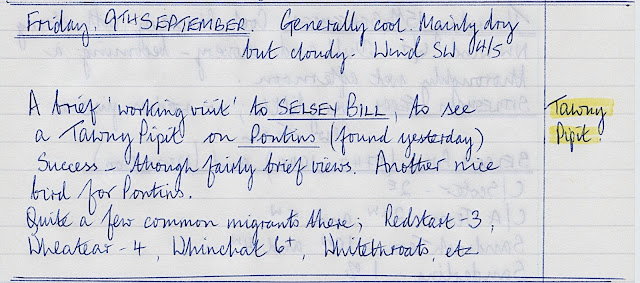 Friday. 9TH SEPTEMBER. Generally cool. Mainly dry
but cloudy. Wind SW 4/5
A brief 'working visit' to SELSEY BILL, to see
a Tawny Pipit on Pontins (found yesterday)
Success - though fairly brief views. Another nice
bird for Pontins.
Quite a few common migrants there; Redstart - 3,
Wheatear - 4, Whinchat 6+, Whitethroats, etc
Tawny
Pipit